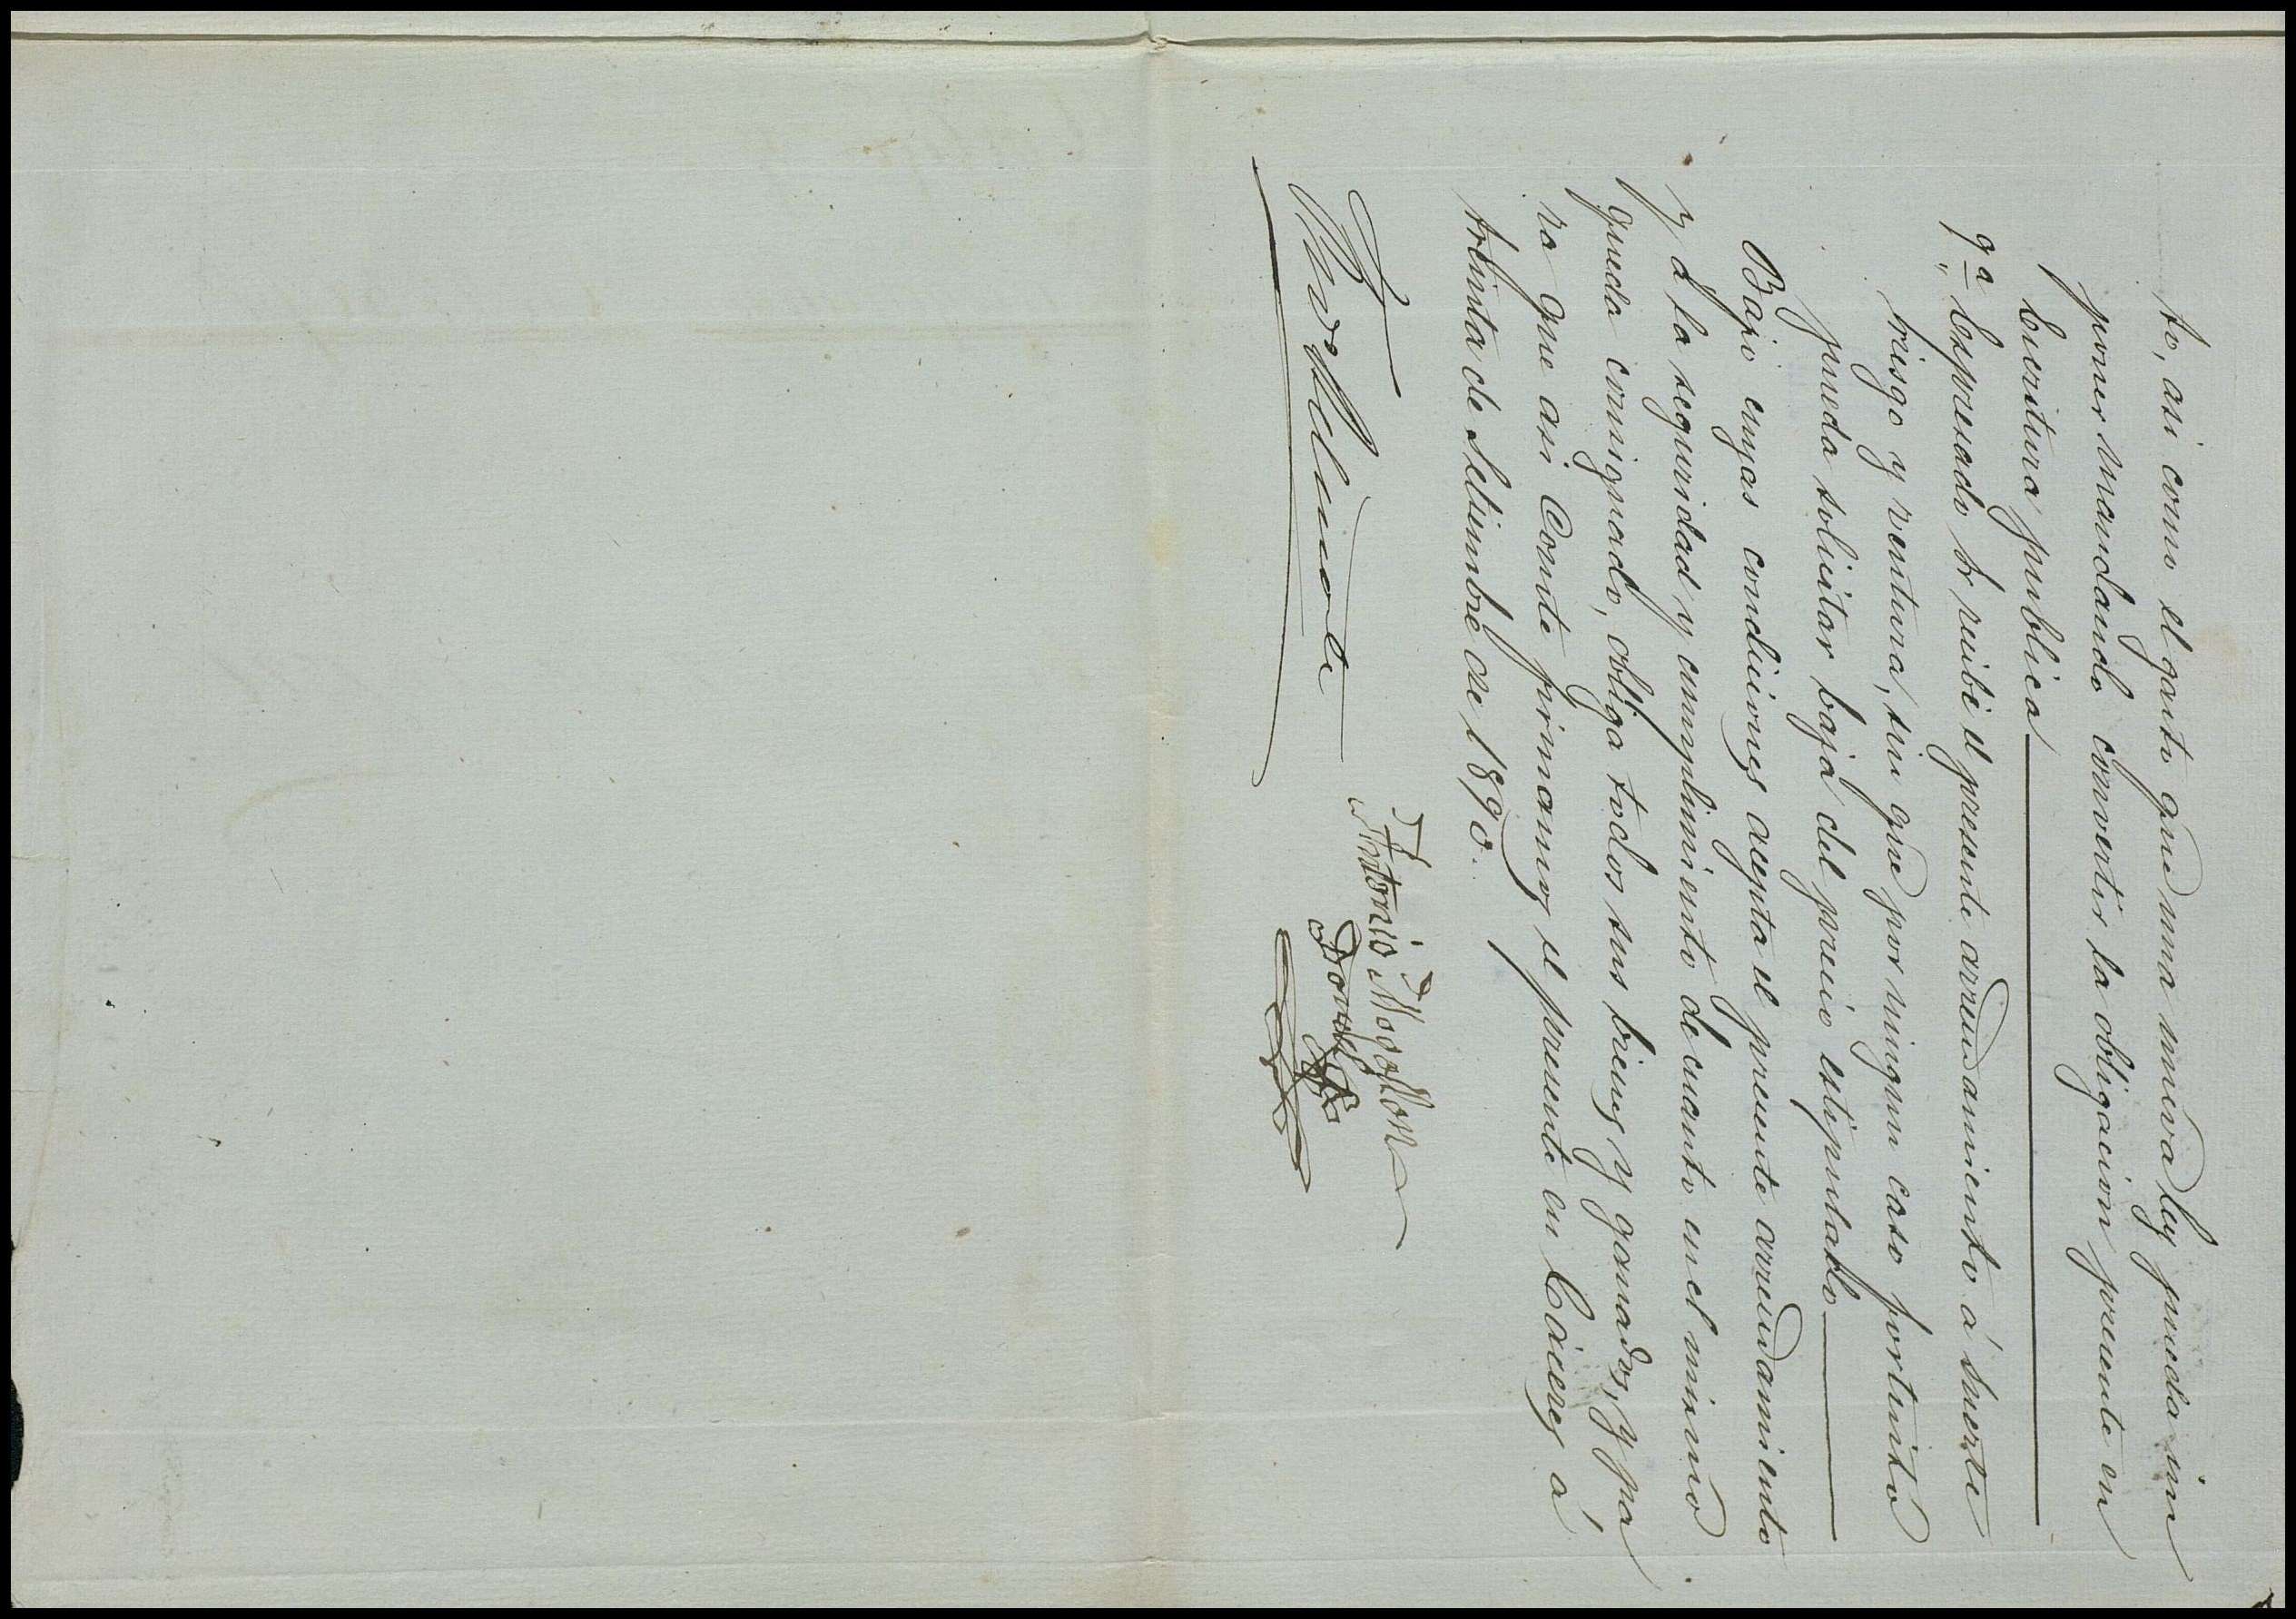 to, asi como el gasto que una nueva ley pueda im
poner mandando convertir la obligacion presente en
Escritura publica
9ª Espresado Sr recibe el presente arrendamiento á suerte
riesgo y ventura, sin que por ningun caso fortuito
pueda solicitar baja del precio estipulado
Bajo cuyas condiciones acepta el presente arrendamiento
y á la seguridad y cumplimiento de cuanto en el mismo
queda consignado, obliga todos sus bienes y ganados, y pa
ra que asi Conste firmamos el presente en Cáceres á
treinta de Setiembre de 1890.
Antonio Mogollon